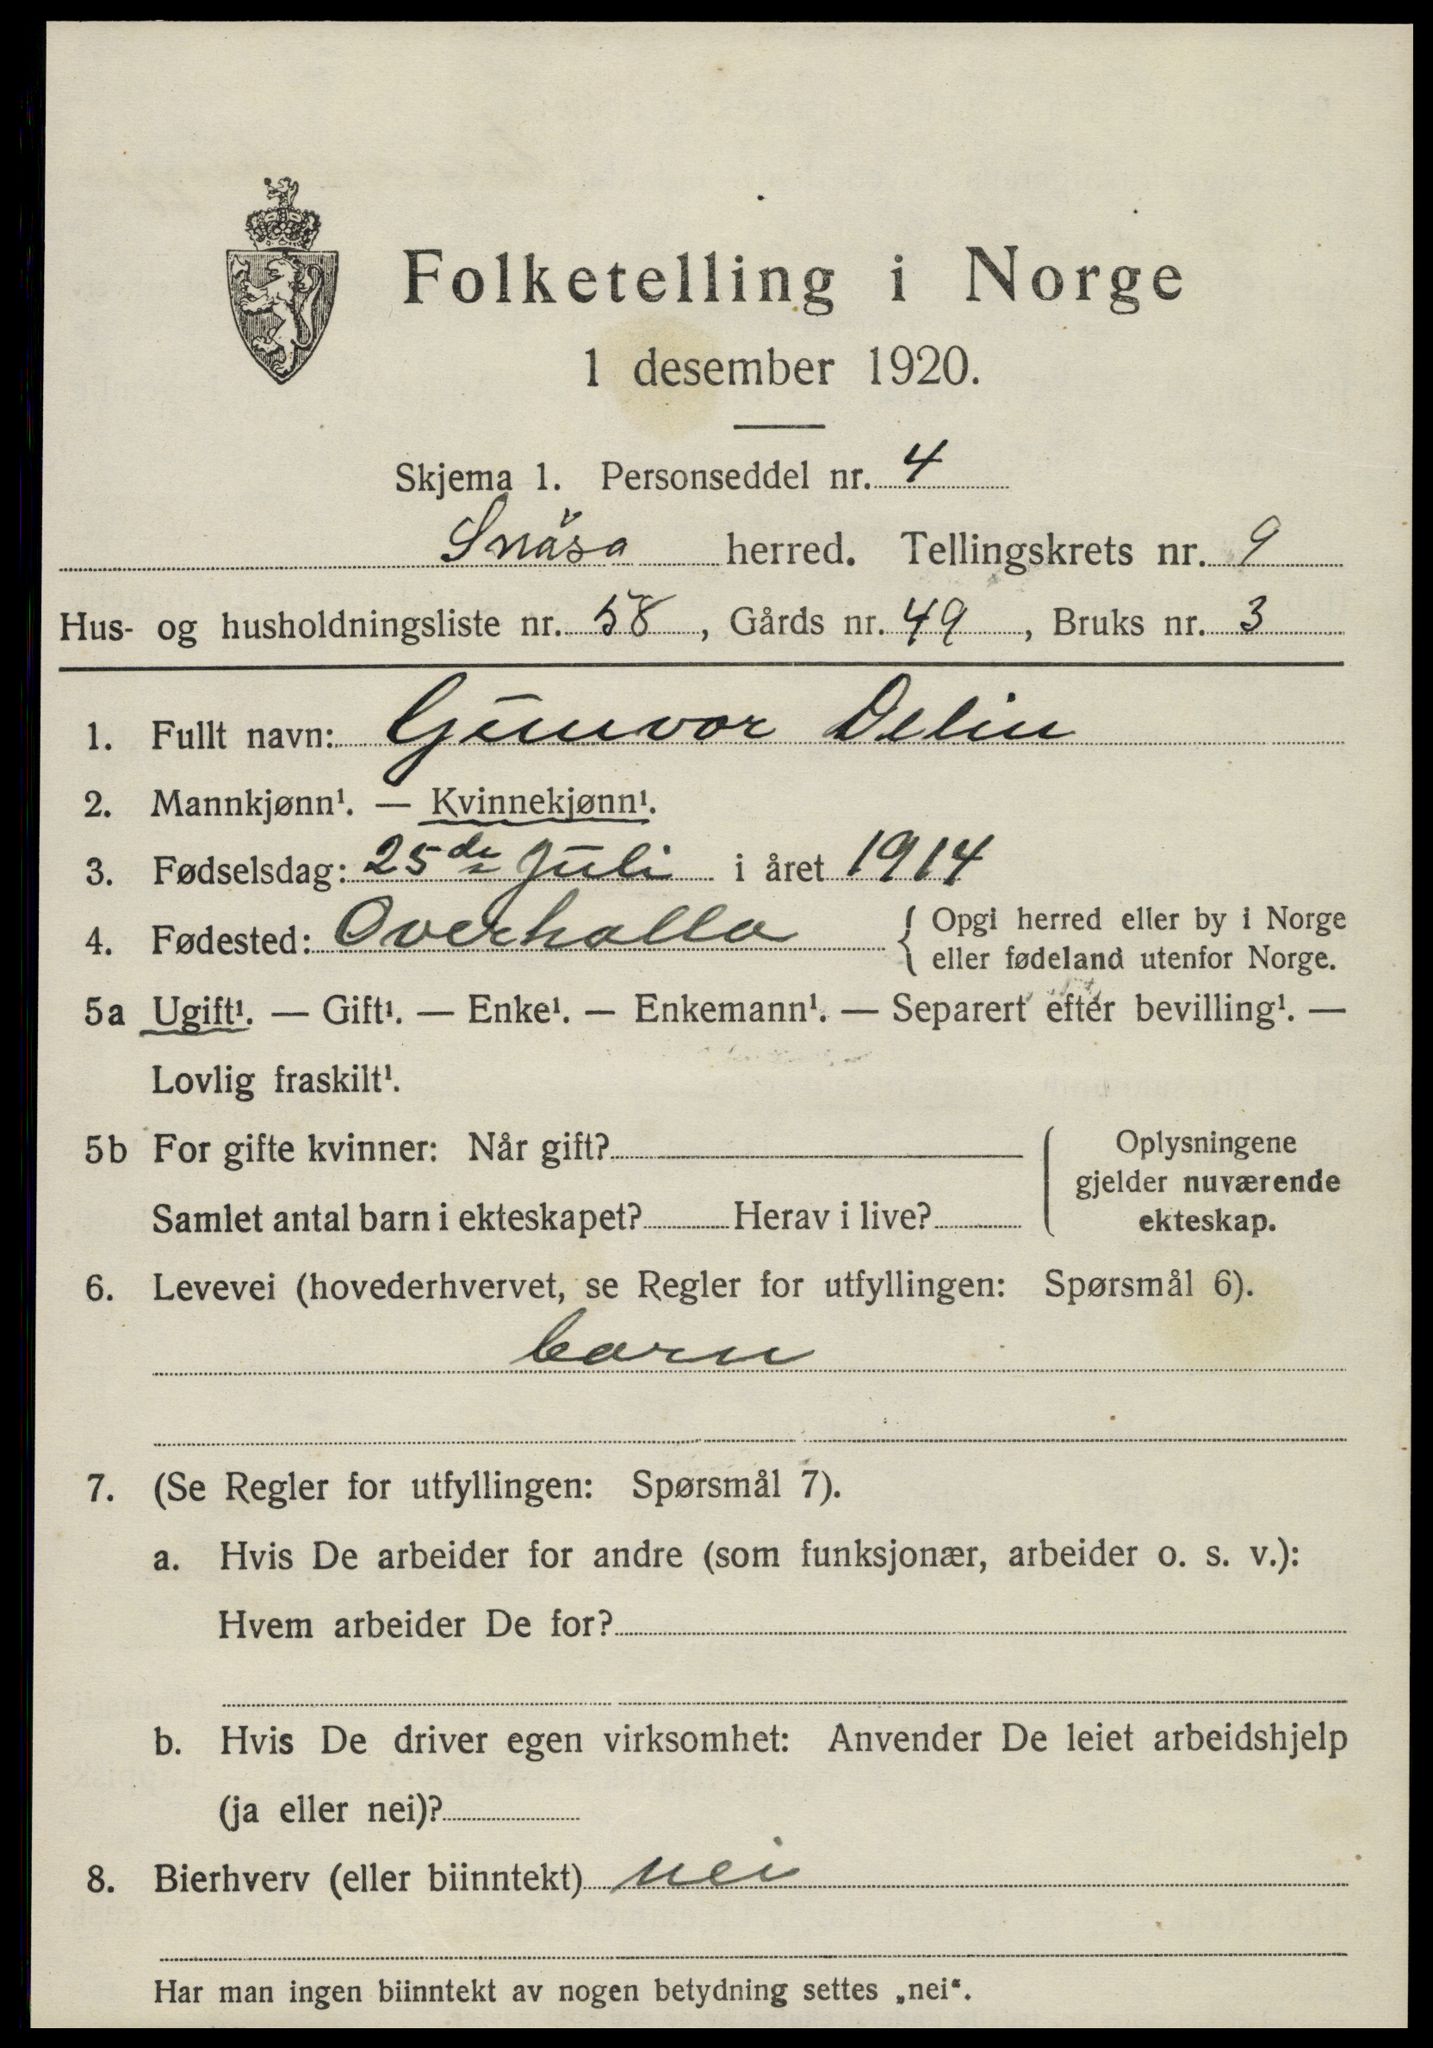 Folketelling i Norge
1 desember 1920.
Skjema 1. Personseddel nr. 4
Snåsa herred. Tellingskrets nr. 9
Hus- og husholdningsliste nr. 58, Gårds nr. 49, Bruks nr. 3
1. Fullt navn: Gunvor Delin
2. Mannkjønn¹. — Kvinnekjønn¹.
3. Fødselsdag: 25de Juli i året 1914
4. Fødested: Overhalla { Opgi herred eller by i Norge
eller fødeland utenfor Norge.
5a Ugift¹. — Gift¹. — Enke¹. — Enkemann¹. — Separert efter bevilling¹. —
Lovlig fraskilt¹.
5b For gifte kvinner: Når gift?
Samlet antal barn i ekteskapet? Herav i live?
Oplysningene
gjelder nuværende
ekteskap.
6. Levevei (hovederhvervet, se Regler for utfyllingen: Spørsmål 6).
barn
7. (Se Regler for utfyllingen: Spørsmål 7).
a. Hvis De arbeider for andre (som funksjonær, arbeider o. s. v.):
Hvem arbeider De for?
b. Hvis De driver egen virksomhet: Anvender De leiet arbeidshjelp
(ja eller nei)?
8. Bierhverv (eller biinntekt) nei
Har man ingen biinntekt av nogen betydning settes „nei“.